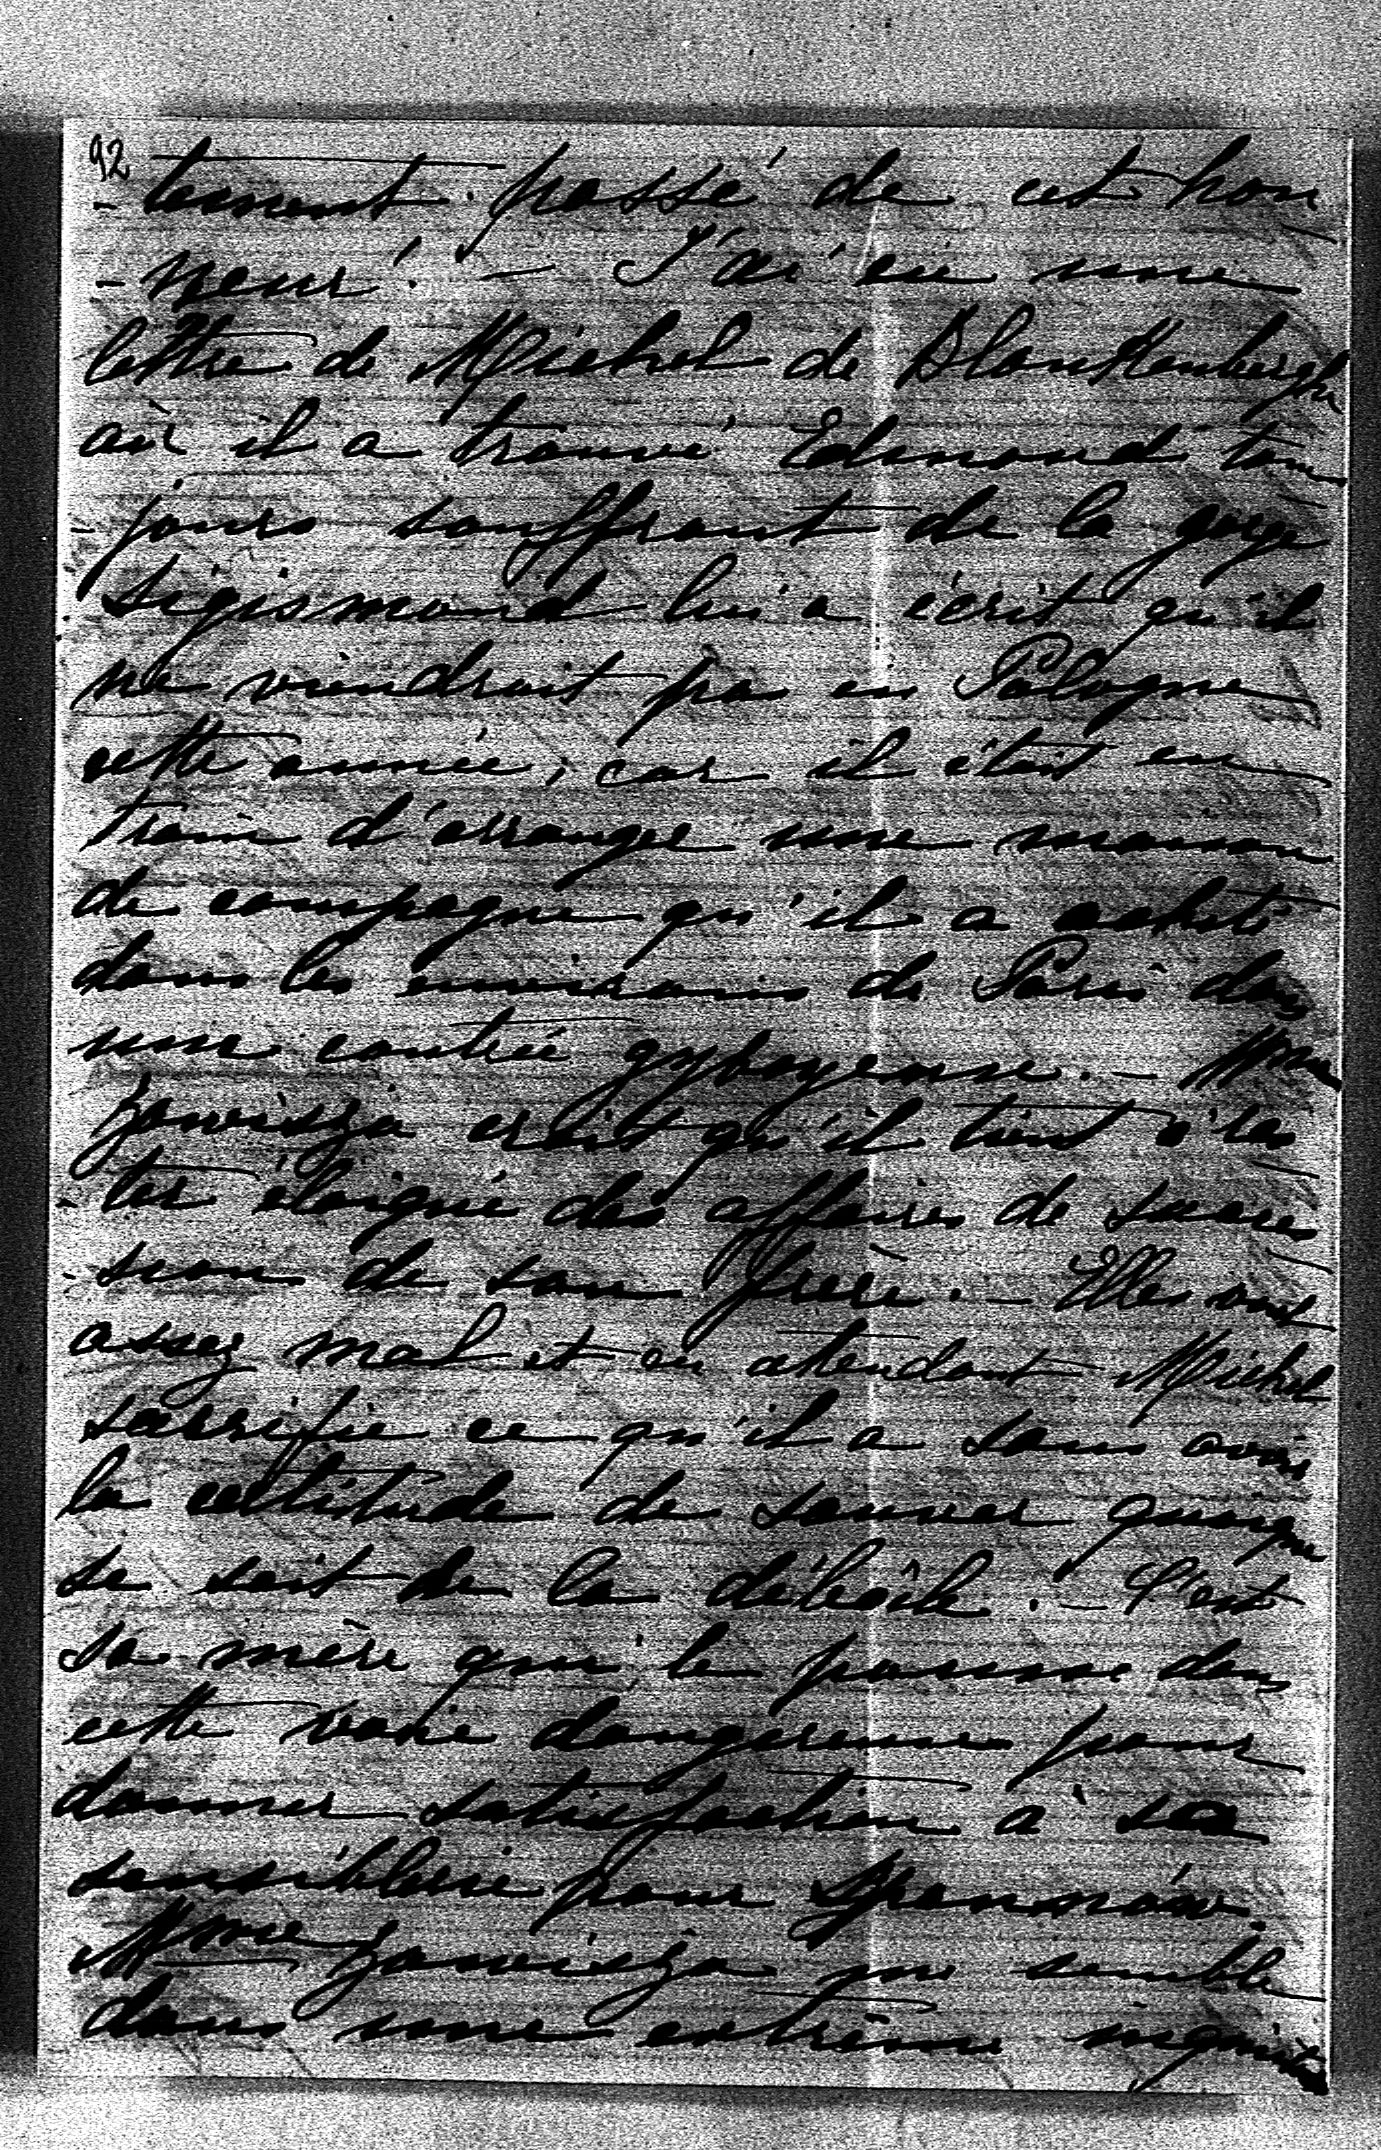 92
- tement passé de cet hon
- neur! — J'ai eu une
lettre de Michel de Blankenberghe
où il a trouvé Edmond tou
- jours souffrant de la gorge
Sigismond lui a écrit qu'il
ne viendrait pas en Pologne
cette année, car il était en
train d'arranger une maison
de campagne qu'il a acheté
dans les environs de Paris dans
une contrée giboyeuse. — Mme
Zawisza croit qu'il tient à res
- ter éloigné des affaires de succes
- sion de son frère. — Elles vont
assez mal et en atendant Michel
sacrifie ce qu'il a sans avoir
la certitude de sauver quoique
se soit de la débâcle. — C'est
sa mère qui le pousse dans
cette voie dangereuse pour
donner satisfaction à sa
sensiblerie pour
Mme Zawisza me semble
dans une extrême inquiétude